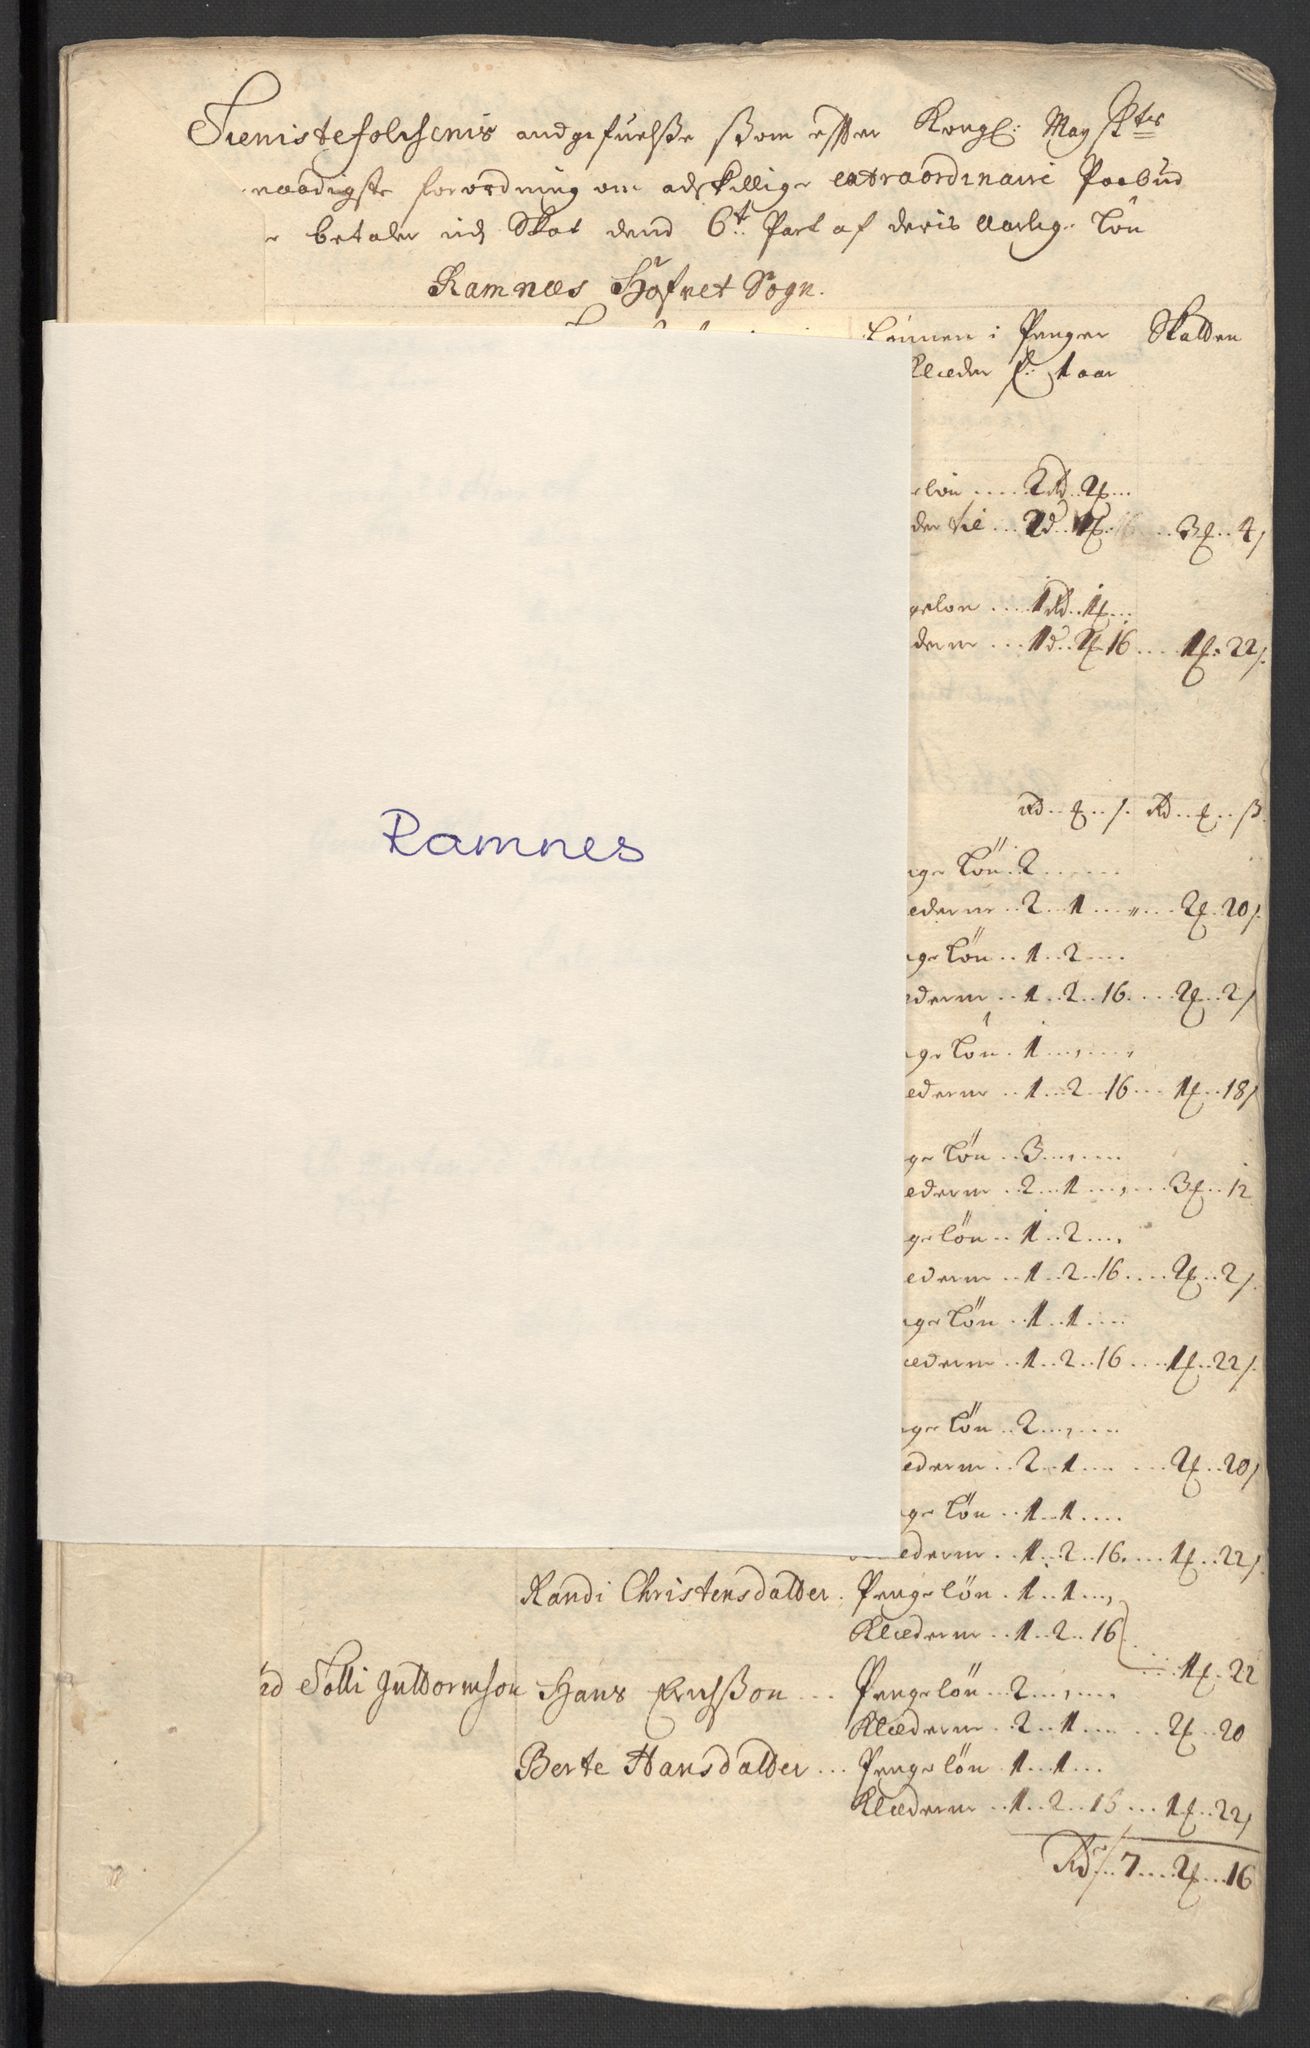 Tienistefolchenis andgifuelsße ßom effter Kongl: May Stes
naadigste forordning om adskillige extraordinairi Paabud
betaler udj Skat dend 6te Part af deris Aarlig Løn
Ramnæs Hofvet Sogn.
Lønnen i Penger Skatten
Klæder p: 1 aar
løn .... 2 Rd 2 ...
der til ... 2 d 1 ... 3 .. 4
geløn ... 1 Rd 1 ...
derne ... 1 d 2 16 ... 1 .. 22
Ramnes
Rd .. .. ß. Rd .. .. ß.
nge Løn 2 ......
æderne .. 2 .. 1 ... 2 .. 20
nge Løn .. 1 .. 2 ....
ederne .. 1 .. 2 .. 16 .... 2 .. 2
nge Løn . 1 ......
æderne .. 1 .. 2 .. 16 ... 1 .. 18
ge Løn .. 3 ......
ederne .. 2 .. 1 ...... 3 .. 12
ge løn .. 1 .. 2 ....
ederne .. 1 .. 2 .. 16 .... 2 .. 2
nge Løn .. 1 .. 1 ....
æderne .. 1 .. 2 .. 16 .... 1 .. 22
nge Løn .. 2 ......
ederne .. 2 .. 1 ...... 2 .. 20
nge Løn .. 1 .. 1 ....
ederne .. 1 .. 2 .. 16 .... 1 .. 22
Randi Christensdatter . Penge løn . 1 .. 1 ...
Klæderne .. 1 .. 2 .. 16
.... 1 .. 22
Solli Guttormson Hans Erichßon ... Penge løn .. 2 ......
Klæderne .. 2 .. 1 ...... 2 .. 20
Berte Hansdatter ... Penge løn . 1 .. 1 ...
Klæderne .. 1 .. 2 .. 16 ... 1 .. 22
Rdr .. 7 .... 2 ... 16